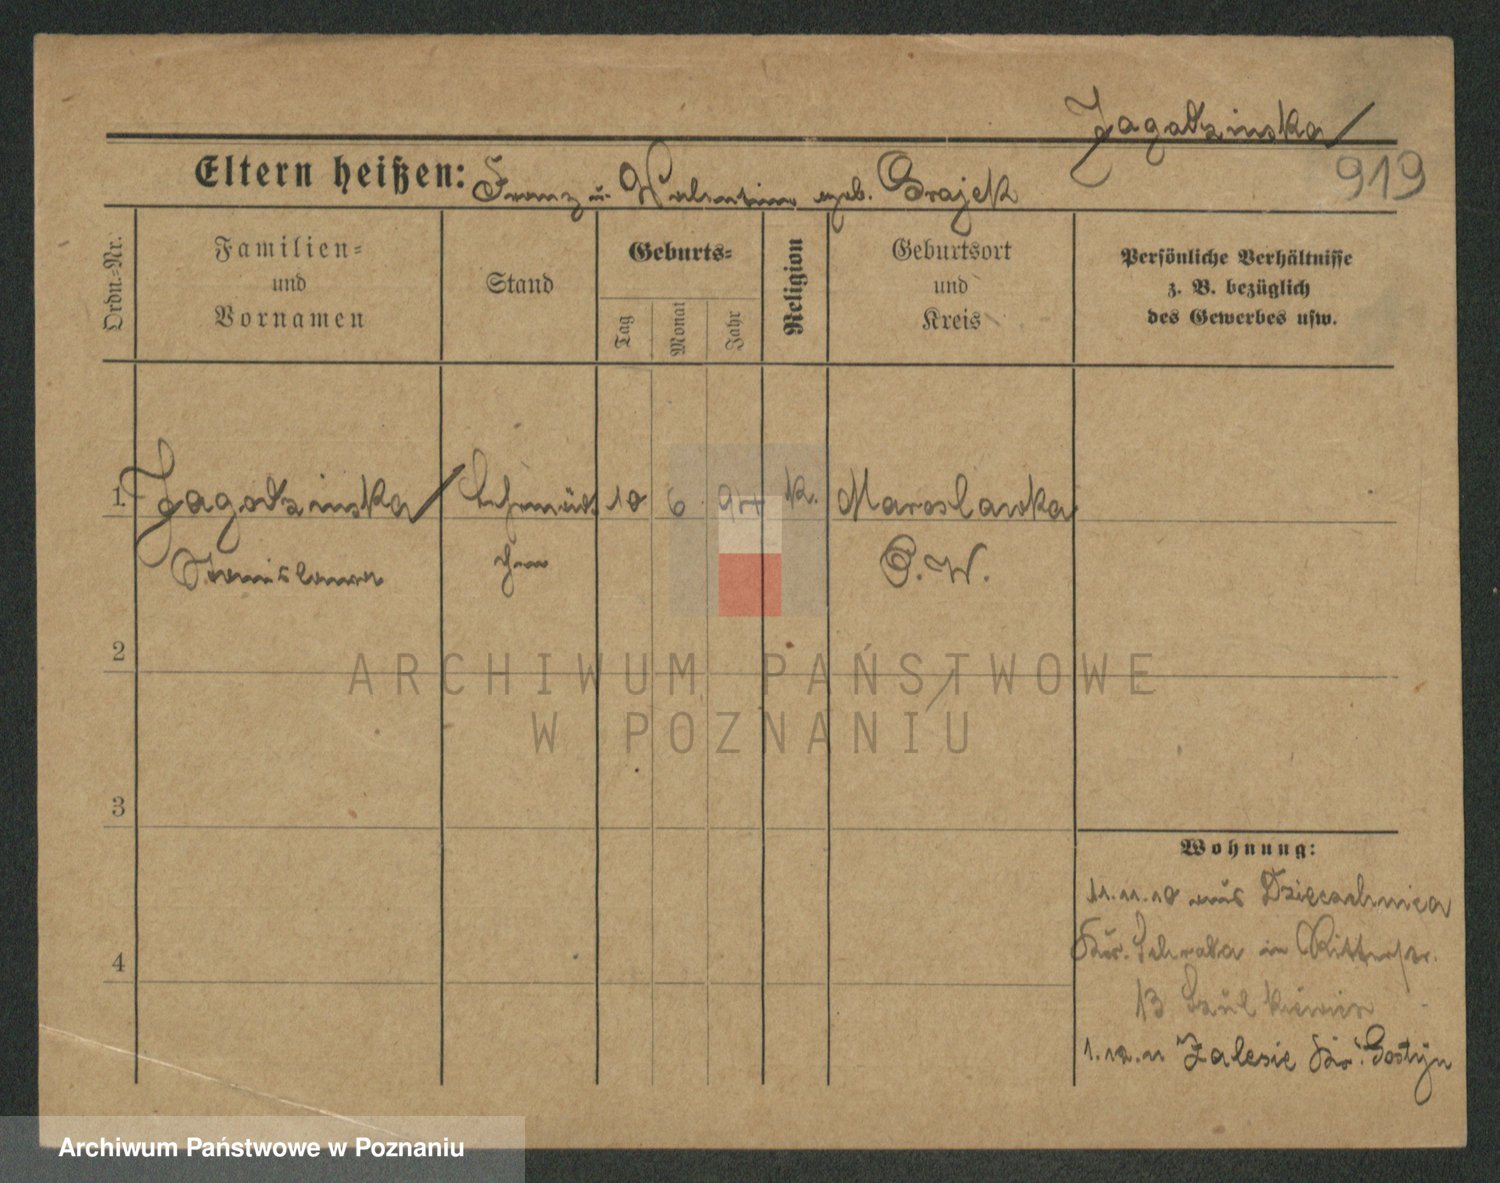 Jagodzinska
919
Eltern heißen: Franz u. Valentine geb. Grajek
Ordn.=Nr.
Familien=
und
Vornamen
Stand
Geburts=
Tag
Monat
Jahr
Religion
Geburtsort
und
Kreis
Persönliche Verhältnisse
z. B. bezüglich
des Gewerbes usw.
1. Jagodzinska Lehrmäd 10 6 91 k.
Stanislawa chen P. W.
2
3
4
Wohnung:
11.11.10 aus
Kr. Schroda in Ritterstr.
13
1.12.11 Zalesie Kr. Gostyn
ARCHIWUM PAŃSTWOWE
W POZNANIU
Archiwum Państwowe w Poznaniu